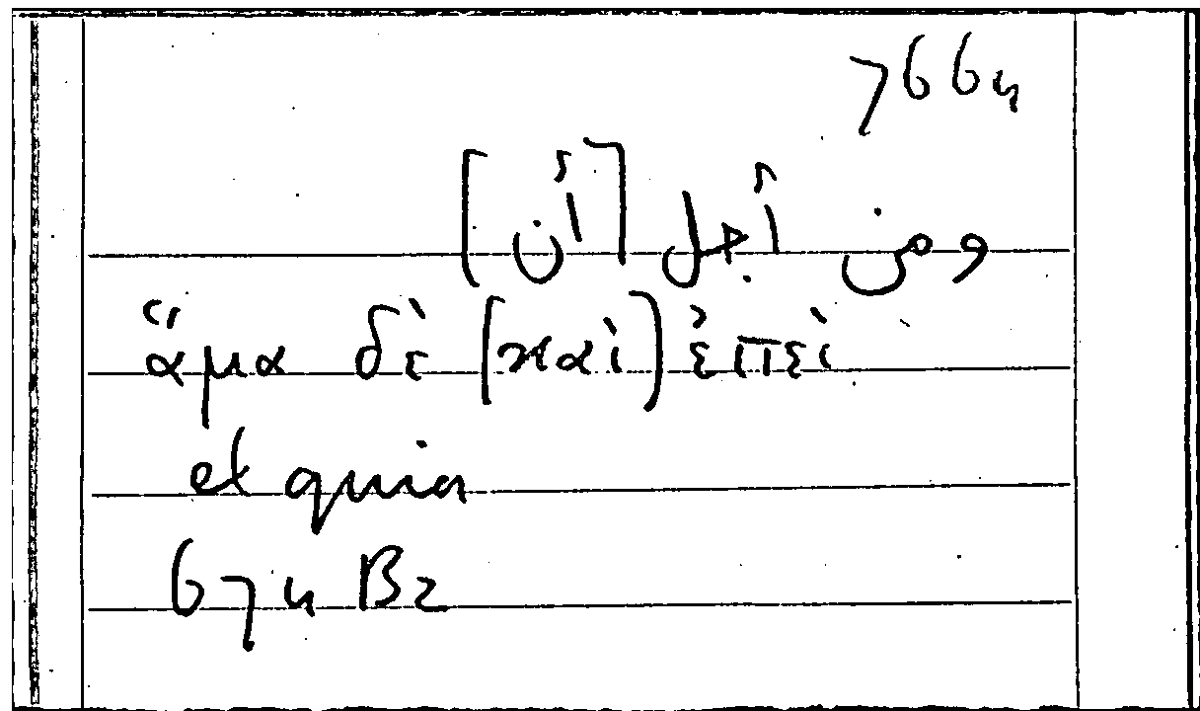 7664
ومن أجل [أن]
ἅμα δὲ (καὶ) ἐπεὶ
et quia
674 B2